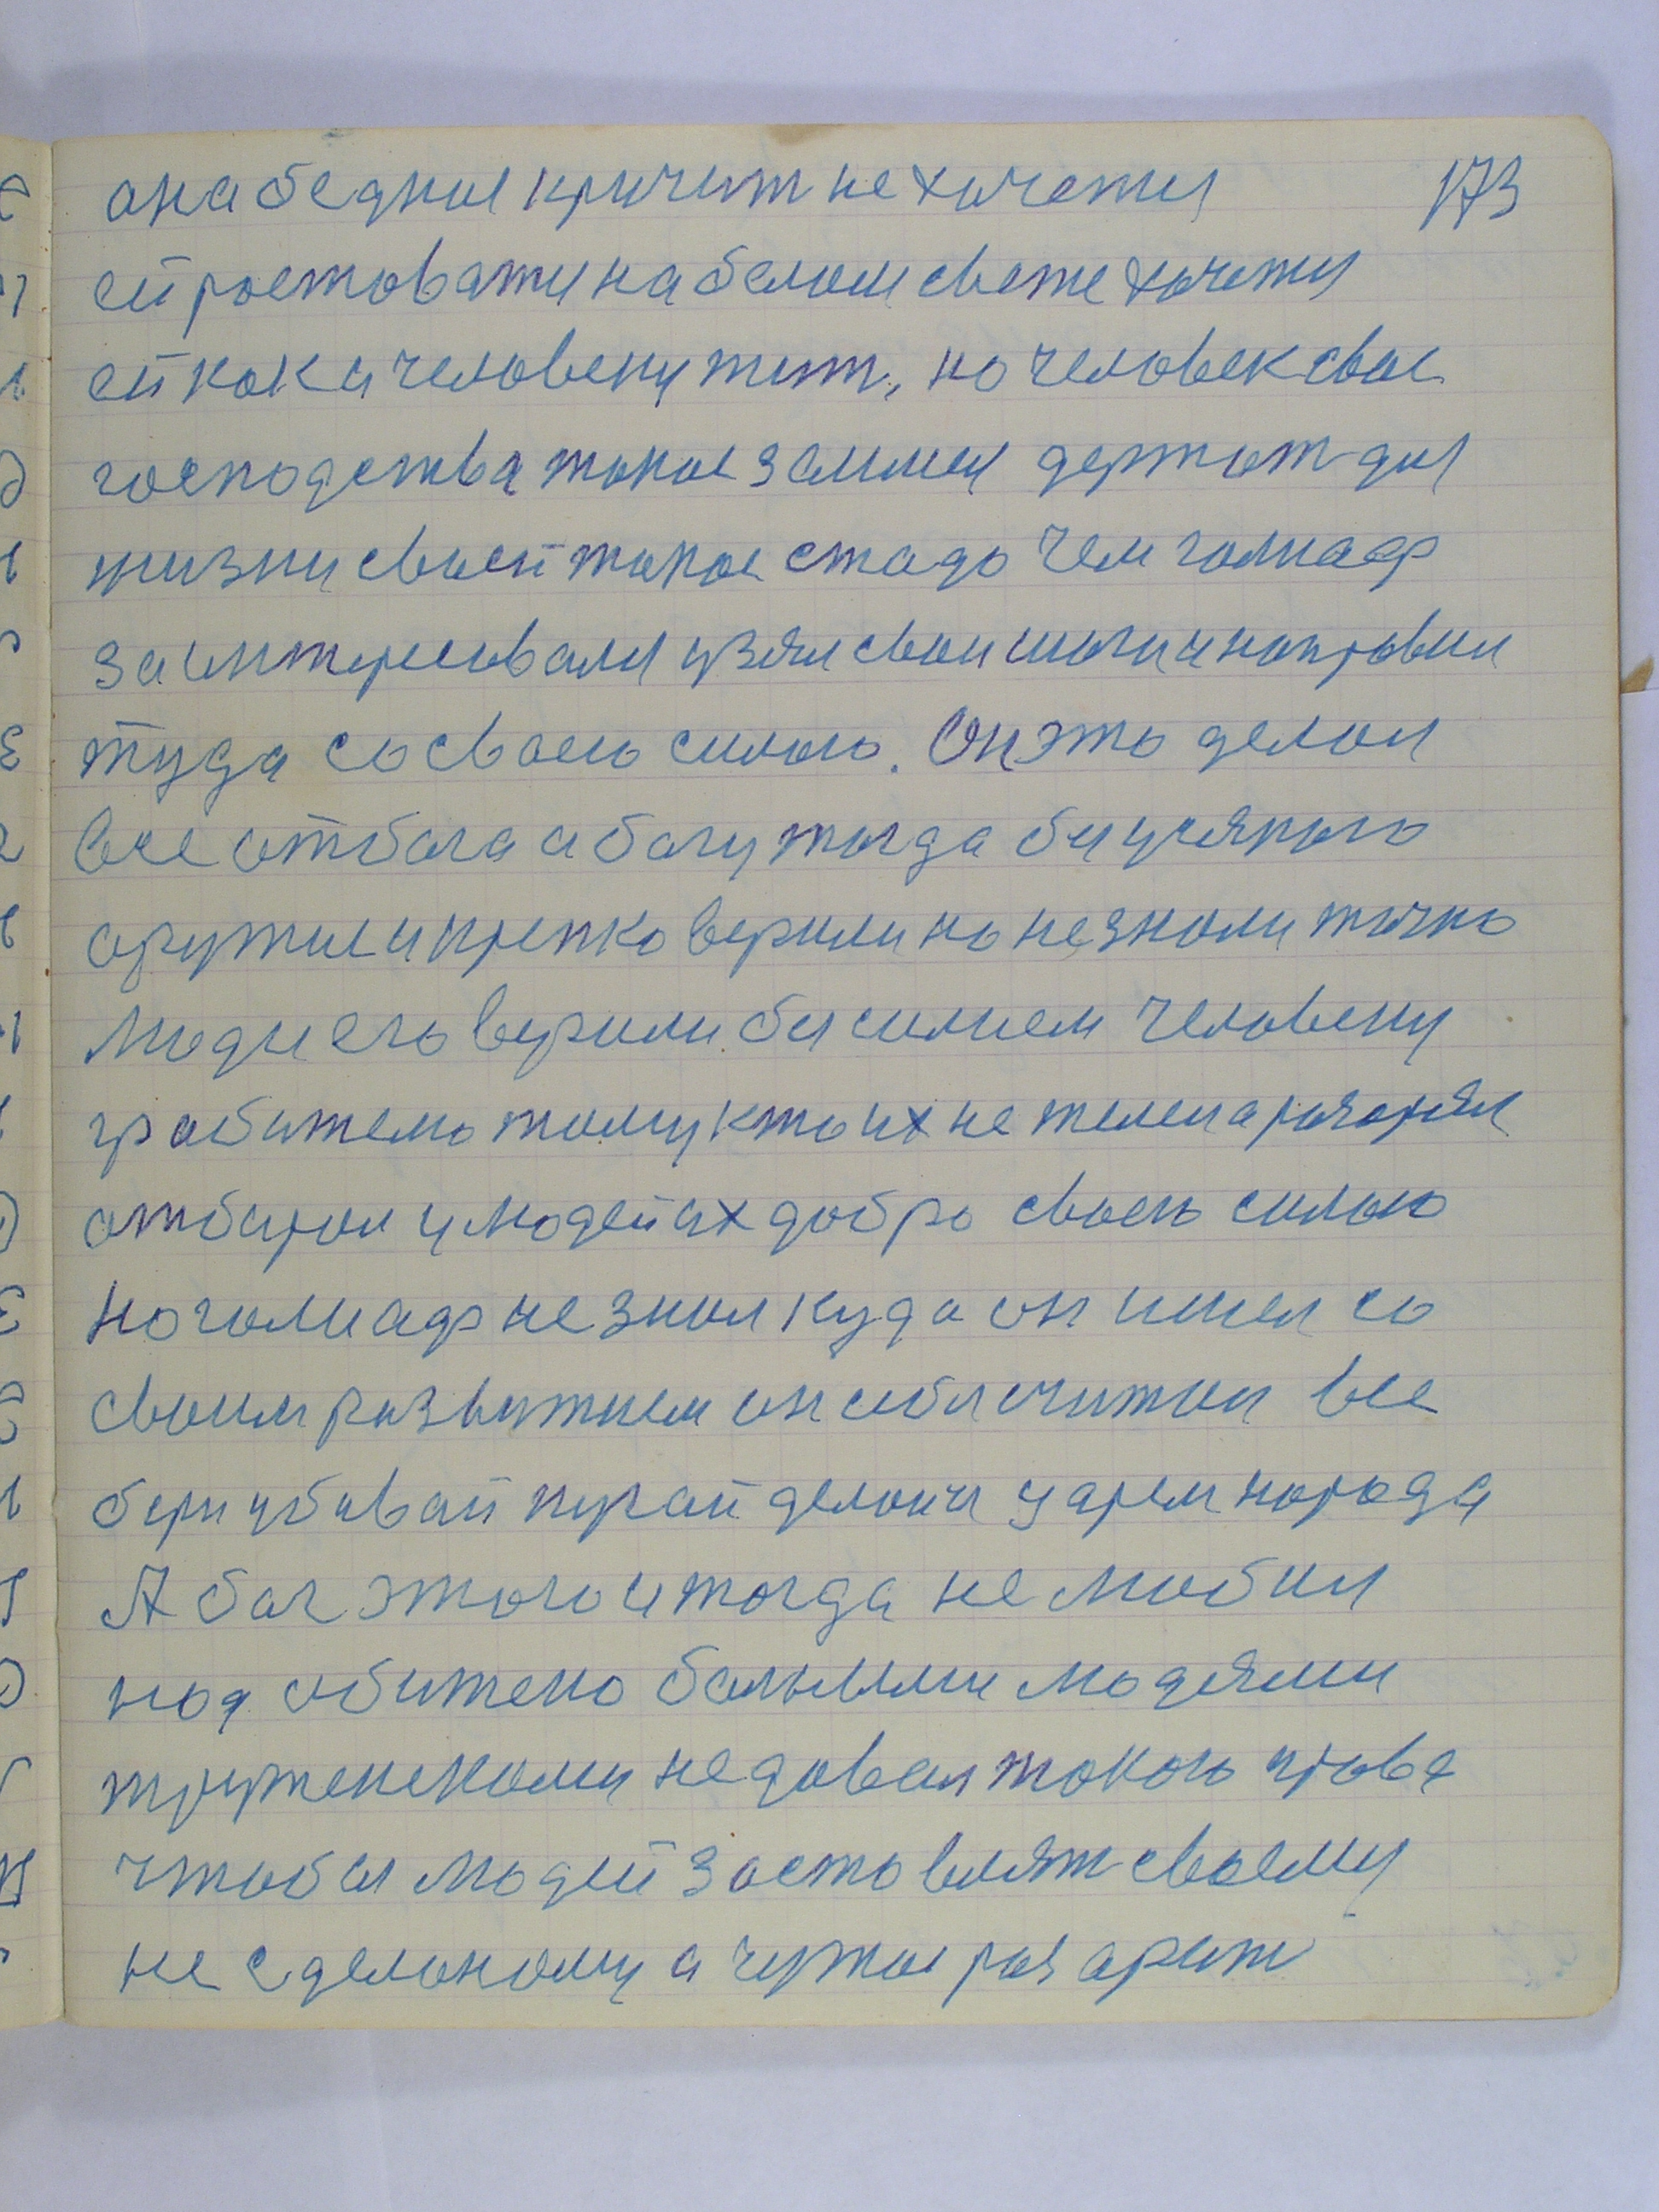 она бедная кричит не хочется 173
ей роставатца на белом свете хочетца
ей как и человеку жит, но человек свае
господства такое заимел держат для
жизни своей такое стадо чем галиаф
заинтересовался узял свои шаги и направил
туда со своею силою. Он это делал
все от бога а богу тогда были усякою
оружие и крепко верили но не знали тачно
Люди его верили были силнем человеку
грабителю тому кто их не желел а разарял
отбирал у людей их добро своею силою
но галиаф не знал куда он шшел со
своим развитием он себя считал все
бери убивай пугай делаися царем народа
А бог этого и тогда не любил
над обижено больными людями
тружениками не давал такого права
чтобы людей заставлят своему
не сделоному а чужое разарят